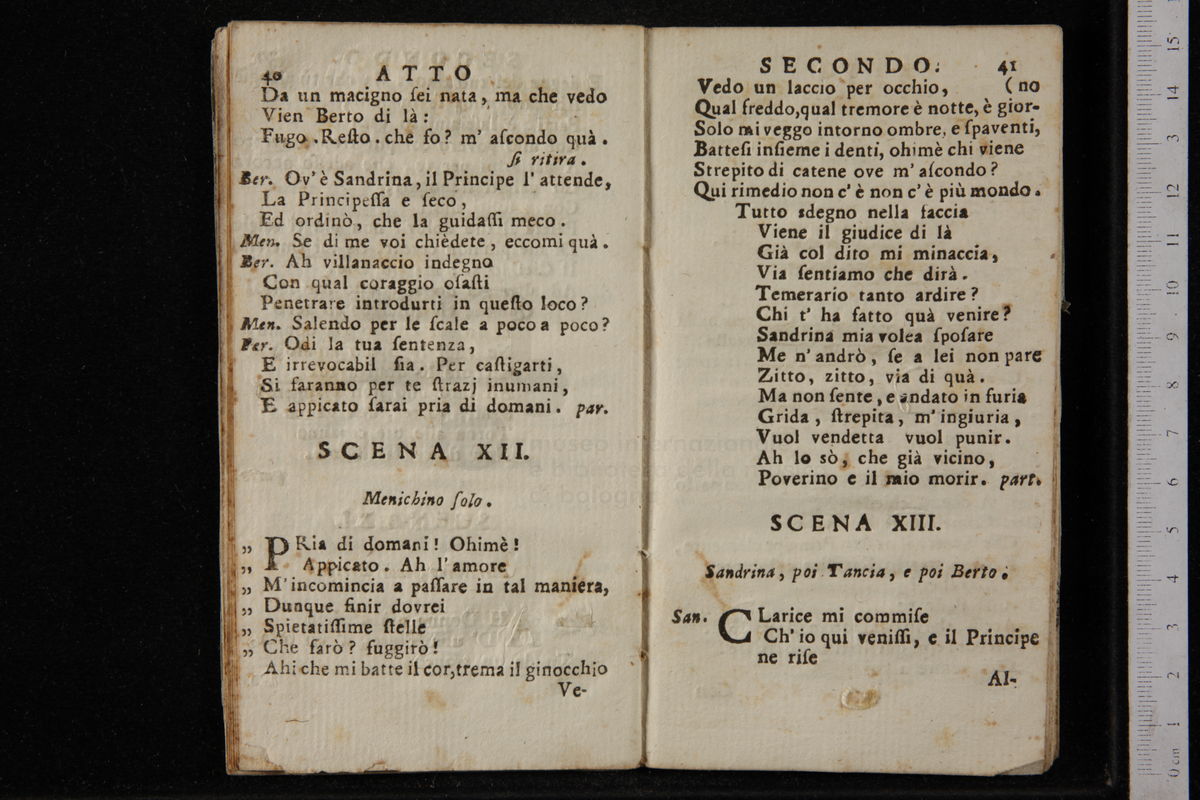 40 ATTO
Da un macigno ſei nata, ma che vedo
Vien Berto di là:
Fugo. Reſto. che fo? m' aſcondo quà.
ſi ritira.
Ber. Ov' è Sandrina, il Principe l' attende,
La Principeſſa e ſeco,
Ed ordinò, che la guidaſſi meco.
Men. Se di me voi chièdete, eccomi quà.
Ber. Ah villanaccio indegno
Con qual coraggio oſaſti
Penetrare introdurti in queſto loco?
Men. Salendo per le ſcale a poco a poco?
Ber. Odi la tua ſentenza,
E irrevocabil ſia. Per caſtigarti,
Si faranno per te ſtrazj inumani,
E appicato ſarai pria di domani. par.
SCENA XII.
Menichino ſolo.
„ PRia di domani! Ohimè!
„ Appicato. Ah l' amore
„ M'incomincia a paſſare in tal maniera,
„ Dunque finir dovrei
„ Spietatiſſime ſtelle
„ Che farò? fuggirò!
Ahi che mi batte il cor, trema il ginocchio
Ve-
SECONDO. 41
Vedo un laccio per occhio, (no
Qual freddo, qual tremore è notte, è gior-
Solo mi veggo intorno ombre, e ſpaventi,
Batteſi inſieme i denti, ohimè chi viene
Strepito di catene ove m' aſcondo?
Qui rimedio non c' è non c' è più mondo.
Tutto sdegno nella faccia
Viene il giudice di là
Già col dito mi minaccia,
Via ſentiamo che dirà.
Temerario tanto ardire?
Chi t' ha fatto quà venire?
Sandrina mia volea ſpoſare
Me n' andrò, ſe a lei non pare
Zitto, zitto, via di quà.
Ma non ſente, e andato in furia
Grida, ſtrepita, m' ingiuria,
Vuol vendetta vuol punir.
Ah lo sò, che già vicino,
Poverino e il mio morir. part.
SCENA XIII.
Sandrina, poi Tancia, e poi Berto.
San. CLarice mi commiſe
Ch' io qui veniſſi, e il Principe
ne riſe
Al-